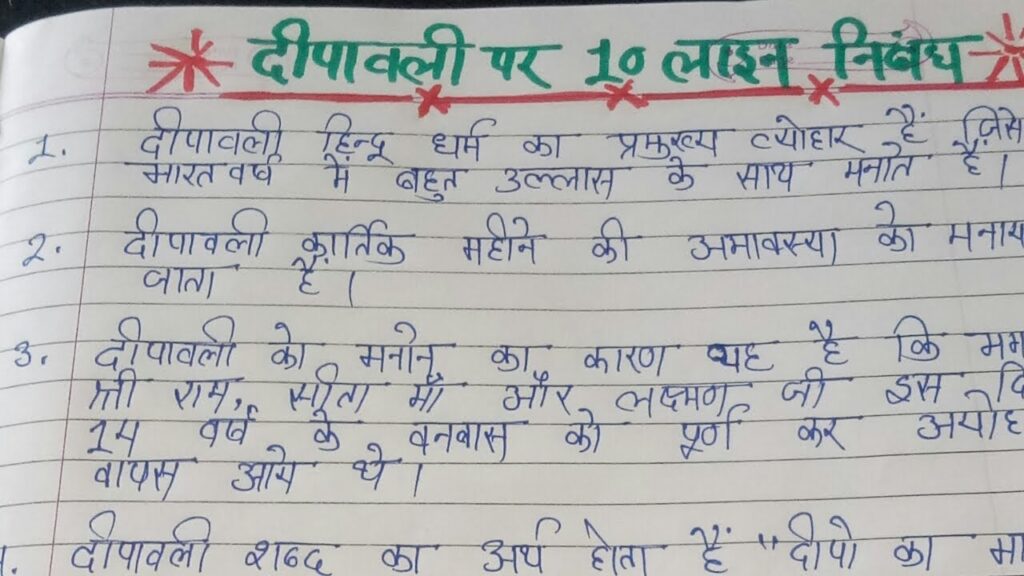 दीपावली पर 10 लाइन निबंध
1. दीपावली हिन्दू धर्म का प्रमुख्य त्योहार हैं जिसे
भारत वर्ष में बहुत उल्लास के साथ मनाते हैं।
2. दीपावली कार्तिक महीने की अमावस्या को मनाय
जाता है।
3. दीपावली को मनाने का कारण यह है कि भग
श्री राम, सीता माँ और लक्ष्मण जी इस दि
14 वर्ष के वनवास को पूर्ण कर अयोध
वापस आये थे।
दीपावली शब्द का अर्थ होता हैं "दीपो का मा